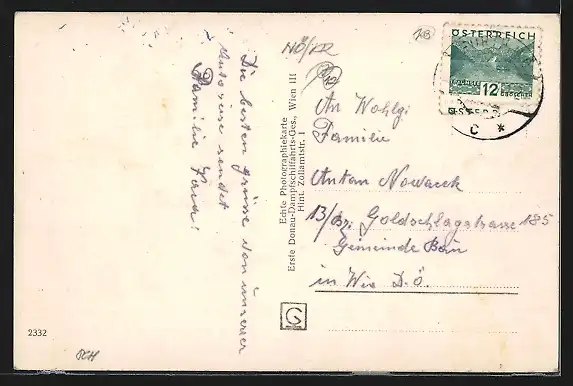 Die besten Grüsse von unserer
Autoreise sendet
Familie
NÖ/KR
Echte Photographiekarte
Erste Donau-Dampfschiffahrts-Ges., Wien III
Hint. Zollamtstr. 1
ÖSTERREICH
12
C *
An Wohlg.
Familie
Antan Nowacek
13/ Goldschlagstrasse 185
Gemeinde Bau
in Wie D.Ö.
G
2332